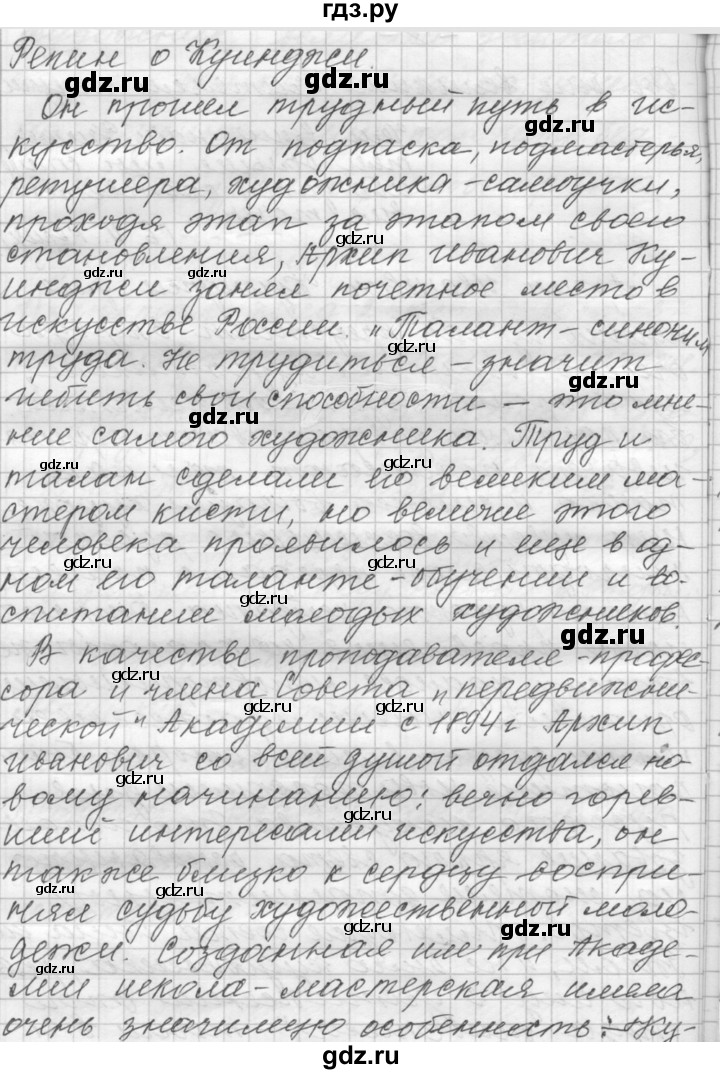 гдз.ру
Репин о Куинджи.
gdz.ru gdz.ru
Он прошел трудный путь в ис-
gdz.ru
кусство. От подпаска, подмастерья,
ретушера, художника-самоучки,
gdz.ru
проходя этап за этапом своего
gdz.ru
становления, Архип Иванович Ку-
gdz.ru gdz.ru
инджи занял почетное место в
искусстве России. "Талант – синоним
труда. Не трудиться – значит
gdz.ru
губить свои способности – это мне-
gdz.ru
ние самого художника. Труд и
gdz.ru
талан сделали его великим ма-
gdz.ru
стером кисти, но величие этого
человека проявилось и еще в од-
gdz.ru gdz.ru
ном его таланте – обучении и во-
gdz.ru
спитании молодых художников.
gdz.ru
В качестве проподавателя-профес-
gdz.ru
сора и члена Совета "передвижни-
gdz.ru gdz.ru
ческой" Академии с 1894 г Архип
Иванович со всей душой отдался но-
gdz.ru
вому начинанию: вечно горев-
gdz.ru
ший интересами искусства, он
также близко к сердцу воспри-
gdz.ru gdz.ru
нял судьбу художественный моло-
gdz.ru
дежи. Созданная им при Акаде-
gdz.ru
мии школа-мастерская имела
очень значимую особенность: – Ку-
gdz.ru